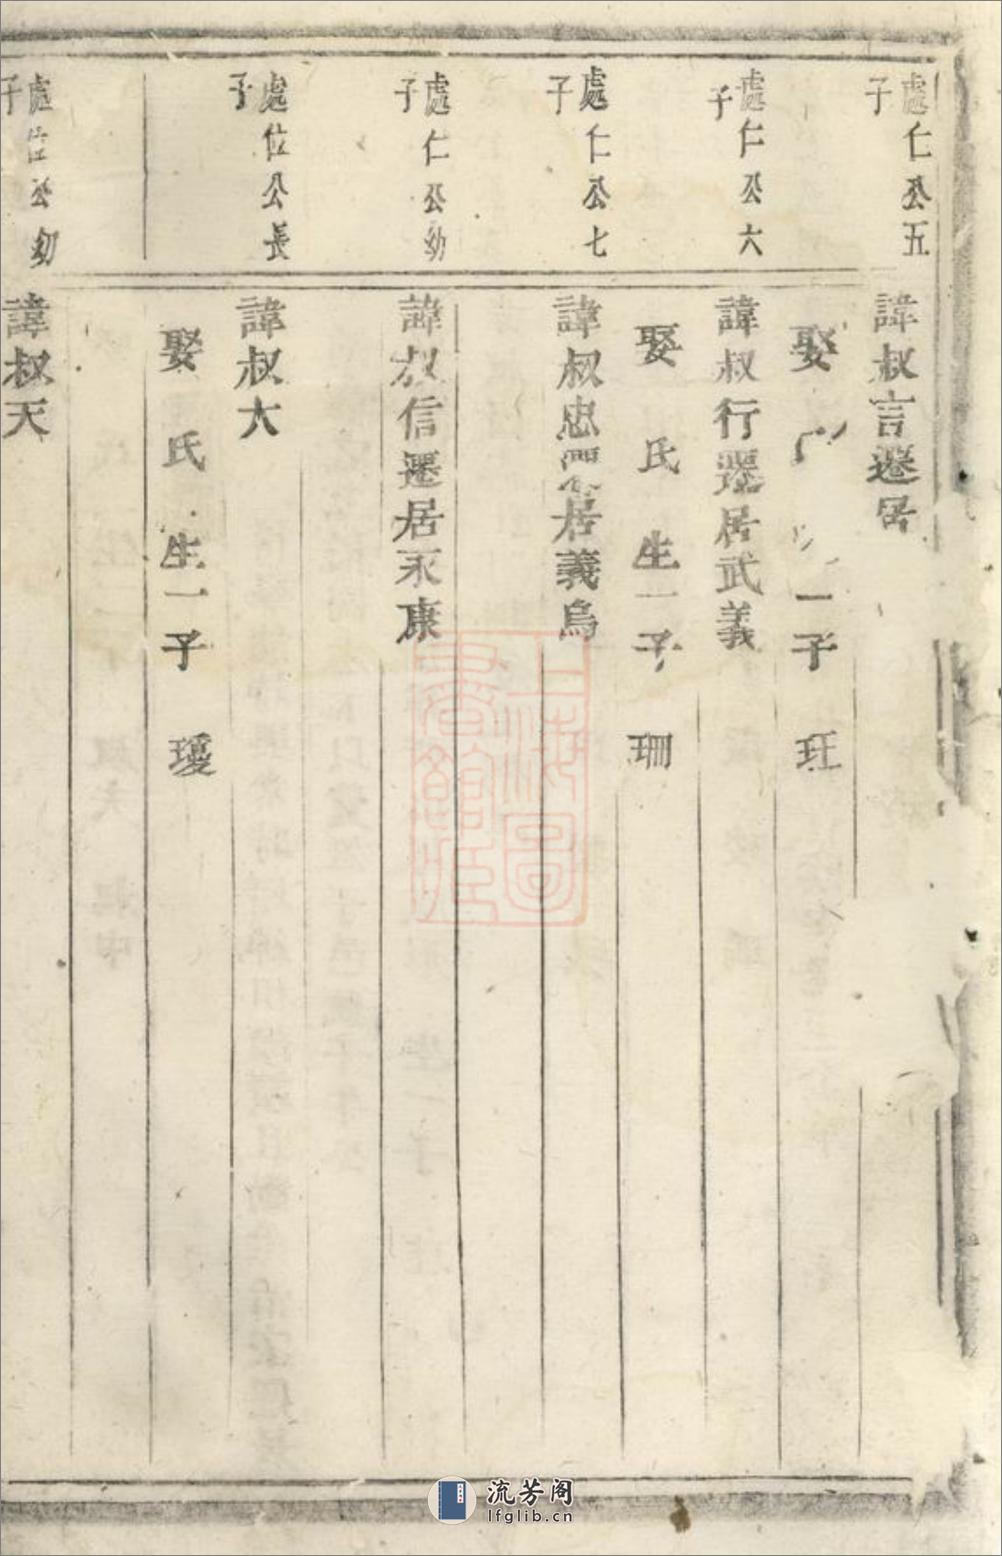 處仁公五子
諱叔言遷居
娶 一子 玨
處仁公六子
諱叔行遷居武義
娶 氏 生一子 珊
處仁公七子
諱叔忠遷居義烏
處仁公幼子
諱叔信遷居永康
處位公長子
諱叔大
娶 氏 生一子 瓊
處位公幼子
諱叔天
上海圖書館藏
流芳阁
lfglib.cn